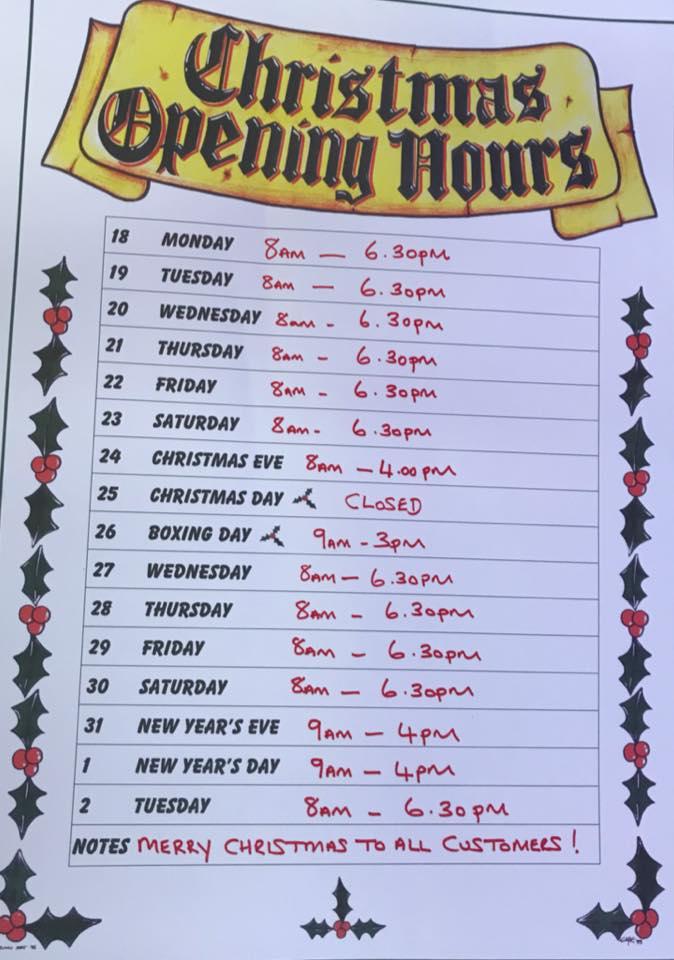 Christmas
Opening Hours
18 MONDAY 8AM — 6.30PM
19 TUESDAY 8AM — 6.30PM
20 WEDNESDAY 8am - 6.30PM
21 THURSDAY 8AM - 6.30PM
22 FRIDAY 8AM - 6.30PM
23 SATURDAY 8AM- 6.30PM
24 CHRISTMAS EVE 8AM - 4.00PM
25 CHRISTMAS DAY CLOSED
26 BOXING DAY 9AM - 3PM
27 WEDNESDAY 8AM — 6.30PM
28 THURSDAY 8AM - 6.30PM
29 FRIDAY 8AM - 6.30PM
30 SATURDAY 8AM — 6.30PM
31 NEW YEAR'S EVE 9AM — 4PM
1 NEW YEAR'S DAY 9AM — 4PM
2 TUESDAY 8AM - 6.30PM
NOTES MERRY CHRISTMAS TO ALL CUSTOMERS!